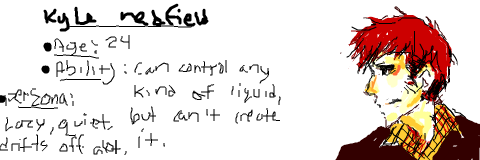 Kyle nedfield
• Age: 24
• Ability: Can control any
kind of liquid,
but can't create
it.
• Persona:
Lazy, quiet,
drifts off alot,